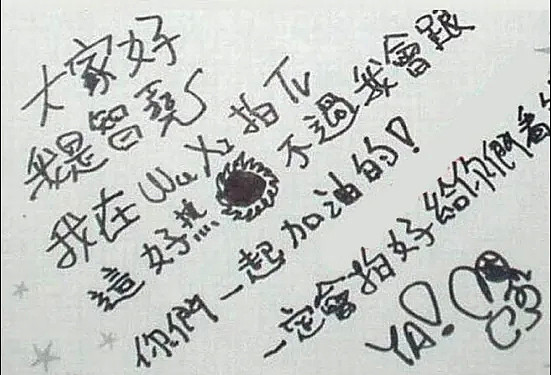 大家好
我是智堯
我在 Wu Xi 拍TV
這好熱 不過我會跟
你們一起加油的!
一定會拍好給你們看
YA!